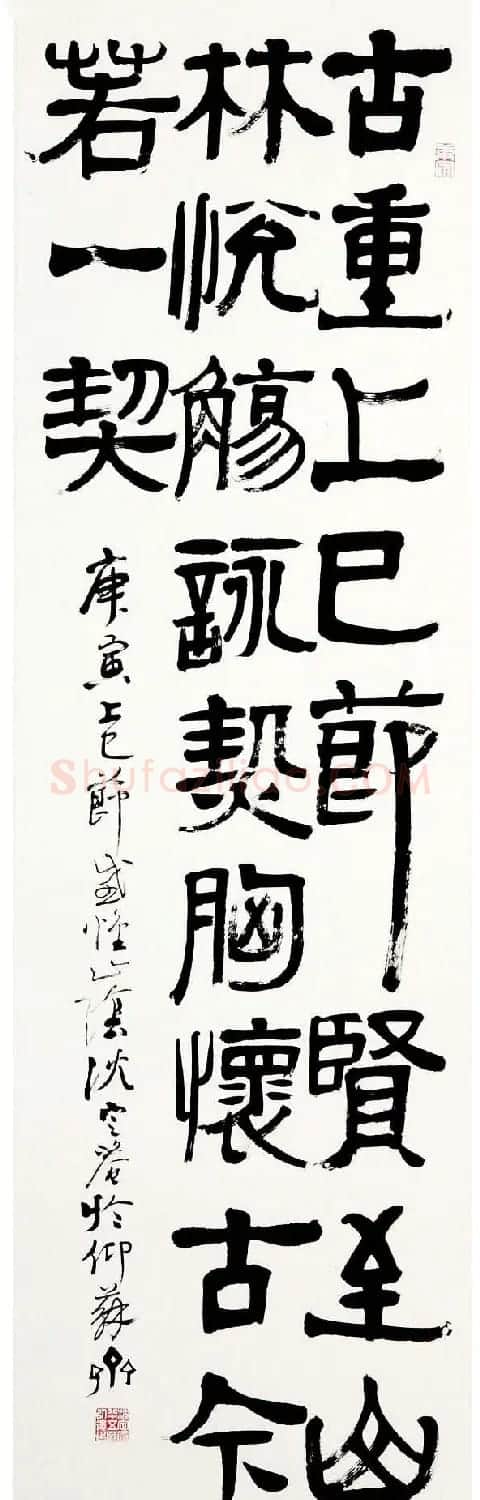 古重上巳節賢至山
林悅觴詠契胸懷古今
若一契
庚寅上巳節感懷山陰沈定庵於仰蘇斋
ShufaZiliao.COM